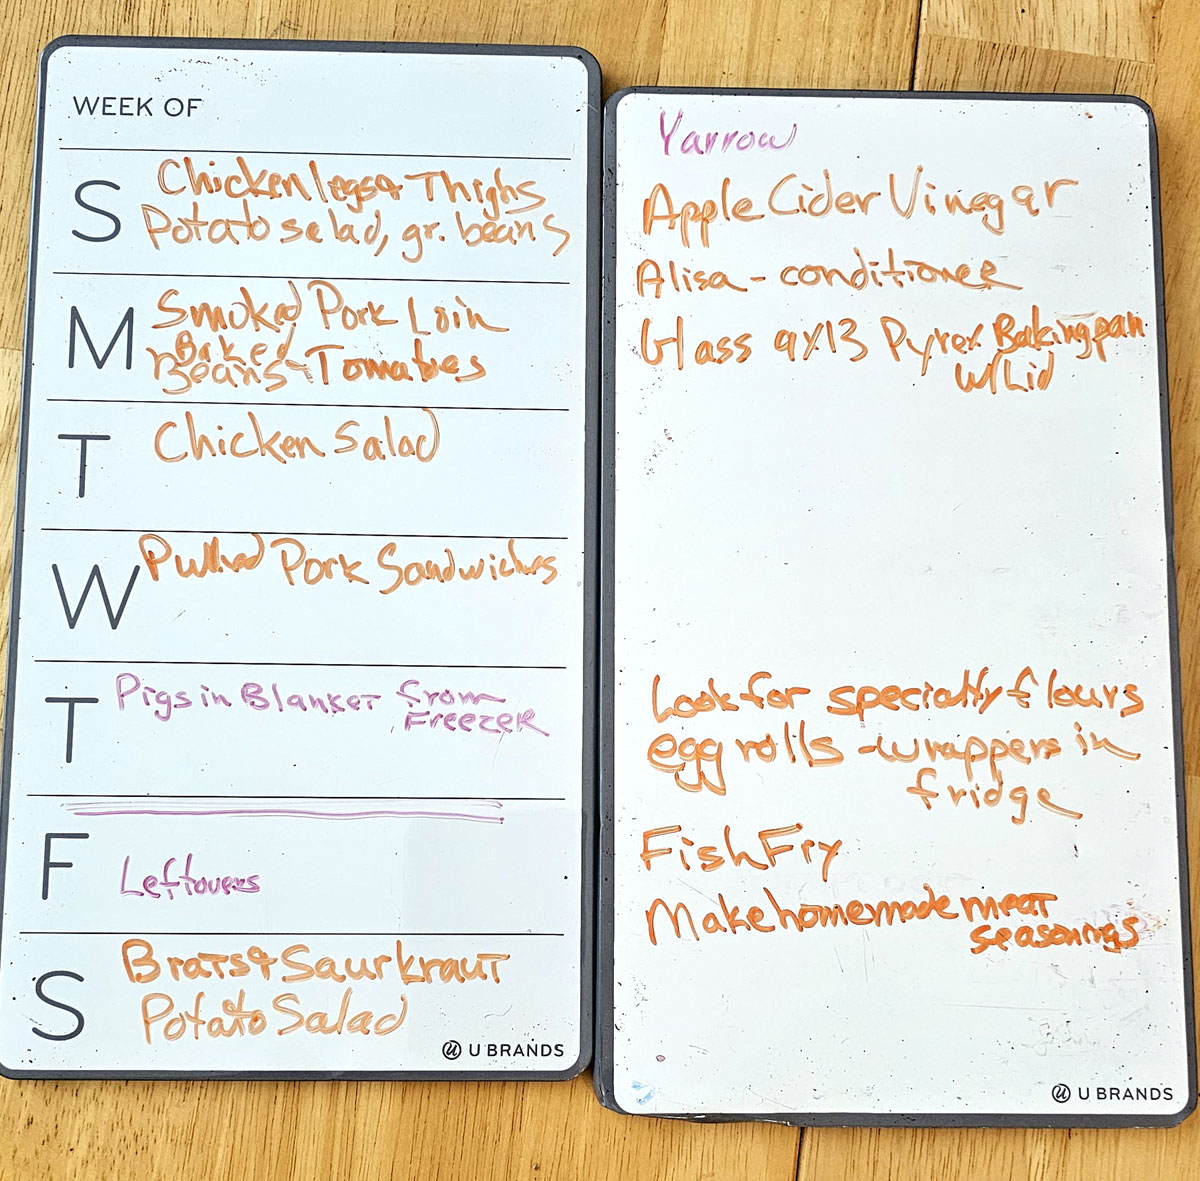 WEEK OF
S
Chicken legs & Thighs
Potato salad, gr. beans
M
Smoked Pork Loin
Baked
Beans + Tomatoes
T
Chicken Salad
W
Pulled Pork Sandwiches
T
Pigs in Blanket from
Freezer
F
Leftovers
S
Brats & Saurkraut
Potato Salad
U BRANDS
Yarrow
Apple Cider Vinegar
Alisa - conditioner
Glass 9x13 Pyrex Baking pan
w/Lid
Look for specialty flours
egg rolls - wrappers in
fridge
Fish Fry
Make homemade meat
seasonings
U BRANDS